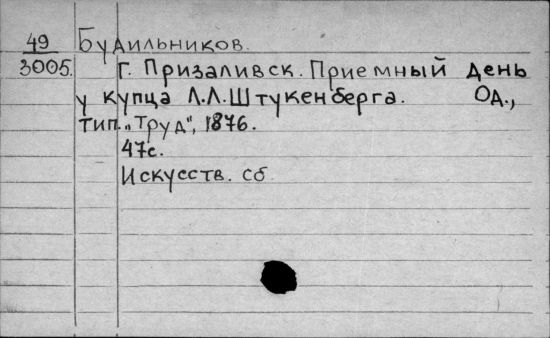 49 Будильников.
3005. Г. Призаливск. Приемный день
у купца Л.Л.Штукенберга. Од.,
тип. „Труд", 1876.
47с.
Искусств. сб